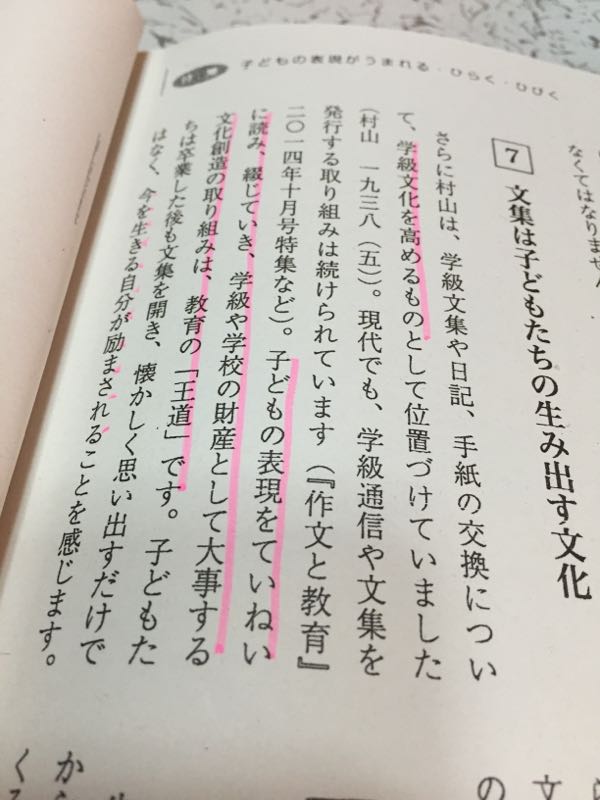 子どもの表現がうまれる・ひらく・ひびく
なくてはなりません
7 文集は子どもたちの生み出す文化
さらに村山は、学級文集や日記、手紙の交換につい
て、学級文化を高めるものとして位置づけていました
(村山 一九三八(五))。現代でも、学級通信や文集を
発行する取り組みは続けられています(『作文と教育』
二〇一四年十月号特集など)。子どもの表現をていねい
に読み、綴じていき、学級や学校の財産として大事する
文化創造の取り組みは、教育の「王道」です。子どもた
ちは卒業した後も文集を開き、懐かしく思い出すだけで
はなく、今を生きる自分が励まされることを感じます。